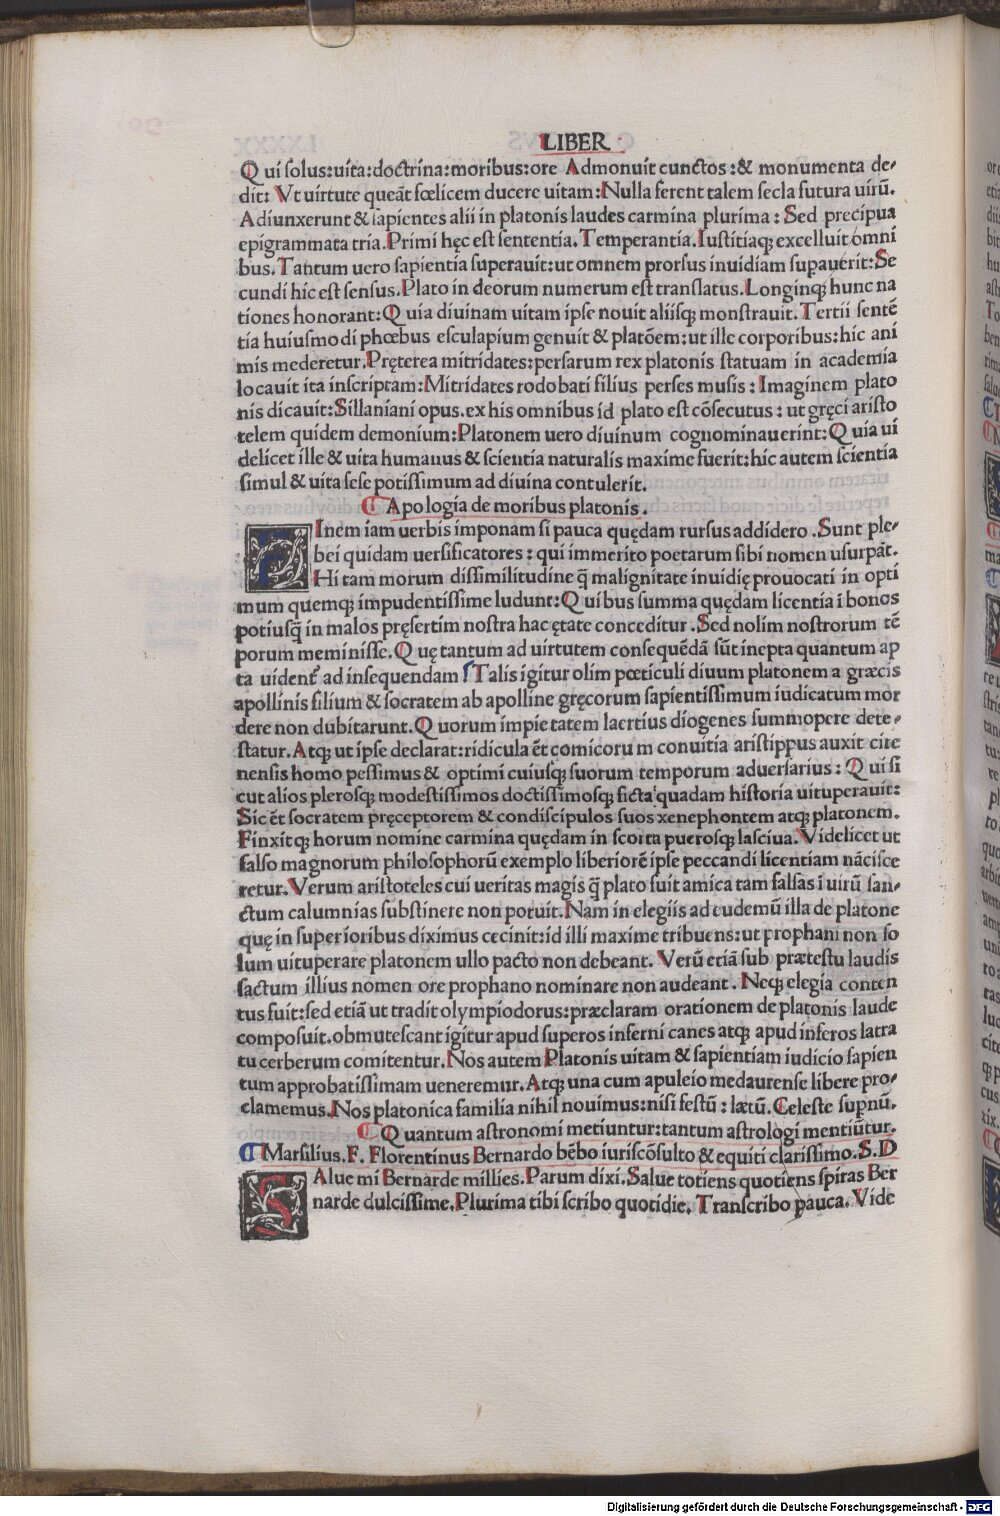 LIBER
Qui solus:uita:doctrina:moribus:ore Admonuit cunctos:& monumenta de⸗
dit: Vt uirtute queāt fœlicem ducere uitam:Nulla ferent talem secla futura uirū.
Adiunxerunt & sapientes alii in platonis laudes carmina plurima: Sed precipua
epigrammata tria.Primi hęc est sententia.Temperantia.Iustitiaqꝫ excelluit omni
bus.Tantum uero sapientia superauit:ut omnem prorsus inuidiam supauerit:Se
cundi hic est sensus.Plato in deorum numerum est translatus.Longinqꝫ hunc na
tiones honorant:Quia diuinam uitam ipse nouit aliisqꝫ monstrauit.Tertii sentē
tia huiusmodi phœbus esculapium genuit & platōem:ut ille corporibus:hic ani
mis mederetur.Pręterea mitridates:persarum rex platonis statuam in academia
locauit ita inscriptam:Mitridates rodobati filius perses musis: Imaginem plato
nis dicauit:Sillaniani opus.ex his omnibus id plato est cōsecutus: ut gręci aristo
telem quidem demonium:Platonem uero diuinum cognominauerint:Quia ui
delicet ille & uita humanus & scientia naturalis maxime fuerit:hic autem scientia
simul & uita sese potissimum ad diuina contulerit.
Apologia de moribus platonis.
FInem iam uerbis imponam si pauca quędam rursus addidero.Sunt ple⸗
bei quidam uersificatores: qui immerito poetarum sibi nomen usurpāt.
Hi tam morum dissimilitudine q̄ malignitate inuidię prouocati in opti
mum quemqꝫ impudentissime ludunt:Quibus summa quędam licentia ī bonos
potiusq̄ in malos pręsertim nostra hac ętate conceditur.Sed nolim nostrorum tē
porum meminisse.Quę tantum ad uirtutem consequēdā sūt inepta quantum ap
ta uident᷑ ad insequendam Talis igitur olim pœticuli diuum platonem a græcis
apollinis filium & socratem ab apolline gręcorum sapientissimum iudicatum mor
dere non dubitarunt.Quorum impietatem laertius diogenes summopere dete⸗
statur.Atqꝫ ut ipse declarat:ridicula ēt comicorum conuitia aristippus auxit cire
nensis homo pessimus & optimi cuiusqꝫ suorum temporum aduersarius: Qui si
cut alios plerosqꝫ modestissimos doctissimosqꝫ ficta quadam historia uituperauit:
Sic ēt socratem pręceptorem & condiscipulos suos xenephontem atqꝫ platonem.
Finxitqꝫ horum nomine carmina quędam in scorta puerosqꝫ lasciua.Videlicet ut
falso magnorum philosophorū exemplo liberiorē ipse peccandi licentiam nācisce
retur.Verum aristoteles cui ueritas magis q̄ plato fuit amica tam falsas ī uirū san⸗
ctum calumnias substinere non potuit.Nam in elegiis ad eudemū illa de platone
quę in superioribus diximus cecinit:id illi maxime tribuens:ut prophani non so
lum uituperare platonem ullo pacto non debeant. Verū etiā sub prætestu laudis
sactum illius nomen ore prophano nominare non audeant. Neqꝫ elegia conten
tus fuit:sed etiā ut tradit olympiodorus:præclaram orationem de platonis laude
composuit.obmutescant igitur apud superos inferni canes atqꝫ apud inferos latra
tu cerberum comitentur.Nos autem Platonis uitam & sapientiam iudicio sapien
tum approbatissimam ueneremur.Atqꝫ una cum apuleio medaurense libere pro⸗
clamemus.Nos platonica familia nihil nouimus:nisi festū: lætū.Celeste supnū.
Quantum astronomi metiuntur:tantum astrologi mentiūtur.
Marsilius.F. Florentinus Bernardo bēbo iuriscōsulto & equiti clarissimo.S.D
SAlue mi Bernarde millies.Parum dixi.Salue totiens quotiens spiras Ber
narde dulcissime.Plurima tibi scribo quotidie. Transcribo pauca.Vide
Digitalisierung gefördert durch die Deutsche Forschungsgemeinschaft - DFG